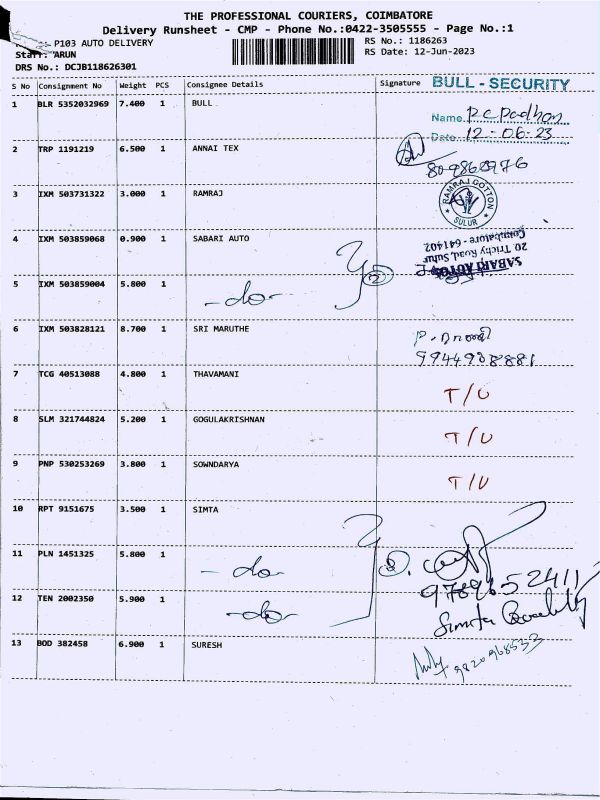 THE PROFESSIONAL COURIERS, COIMBATORE
Delivery Runsheet - CMP - Phone No.:0422-3505555 - Page No.:1
P103 AUTO DELIVERY
RS No.: 1186263
Staff: ARUN
RS Date: 12-Jun-2023
DRS No.: DCJB118626301
S No Consignment No Weight PCS Consignee Details Signature
BULL - SECURITY
1 BLR 5352032969 7.400 1 BULL
Name
Date 12-06-23
2 TRP 1191219 6.500 1 ANNAI TEX
3 IXM 503731322 3.000 1 RAMRAJ
RAMRAJ COTTON
SULUR
4 IXM 503859068 0.900 1 SABARI AUTO
SABARI AUTOS
20, Trichy Road, Sulur
Coimbatore - 641402
5 IXM 503859004 5.800 1 -do- 2
6 IXM 503828121 8.700 1 SRI MARUTHE
9944908881
7 TCG 40513088 4.800 1 THAVAMANI T/U
8 SLM 321744824 5.200 1 GOGULAKRISHNAN T/U
9 PNP 530253269 3.800 1 SOWNDARYA T/U
10 RPT 9151675 3.500 1 SIMTA
11 PLN 1451325 5.800 1 -do-
9789652411
12 TEN 2002350 5.900 1 -do-
Simta
13 BOD 382458 6.900 1 SURESH
9820968533